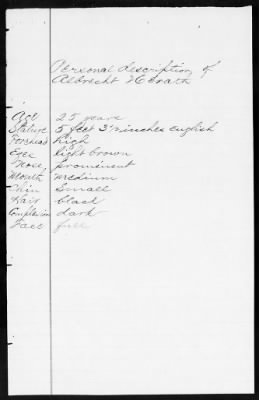 Personal description of
Albrecht Herath
Age 25 years
Stature 5 feet 3½ inches english
Forehead high
Eyes light brown
Nose prominent
Mouth medium
Chin small
Hair black
Complexion dark
Face full